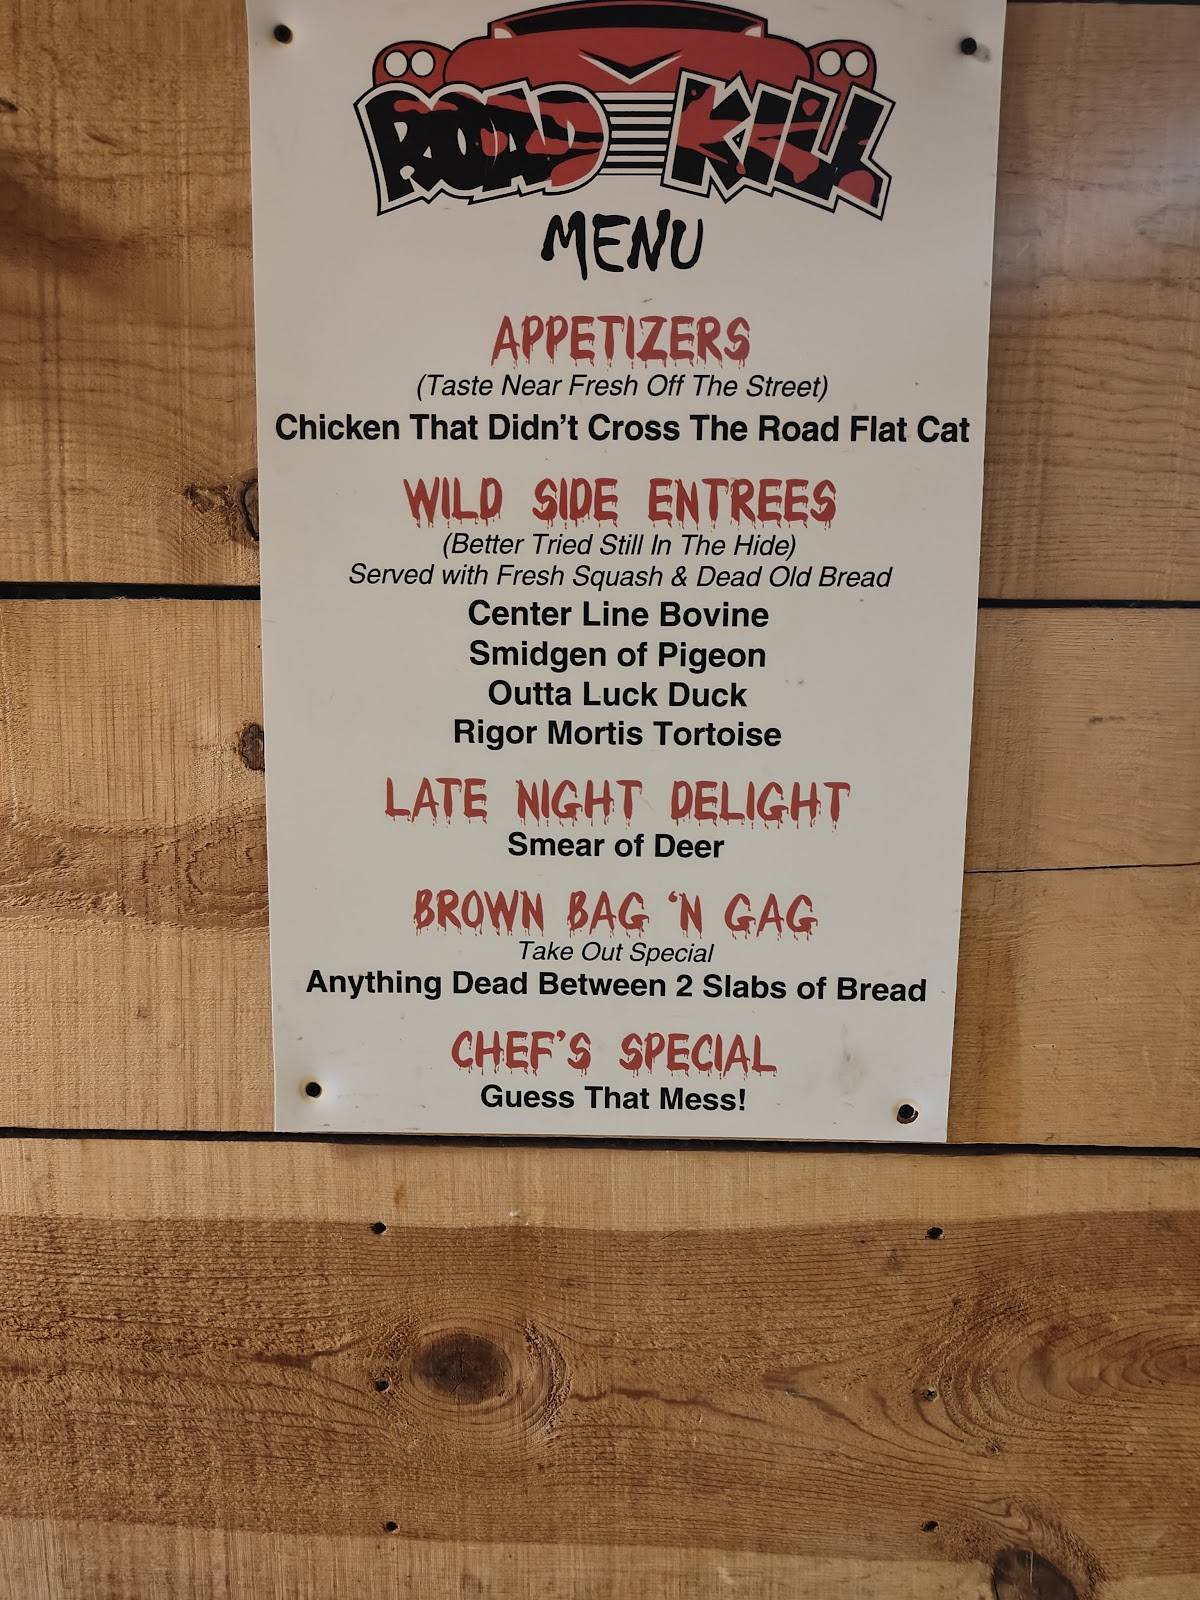 ROAD KILL
MENU
APPETIZERS
(Taste Near Fresh Off The Street)
Chicken That Didn't Cross The Road Flat Cat
WILD SIDE ENTREES
(Better Tried Still In The Hide)
Served with Fresh Squash & Dead Old Bread
Center Line Bovine
Smidgen of Pigeon
Outta Luck Duck
Rigor Mortis Tortoise
LATE NIGHT DELIGHT
Smear of Deer
BROWN BAG 'N GAG
Take Out Special
Anything Dead Between 2 Slabs of Bread
CHEF'S SPECIAL
Guess That Mess!